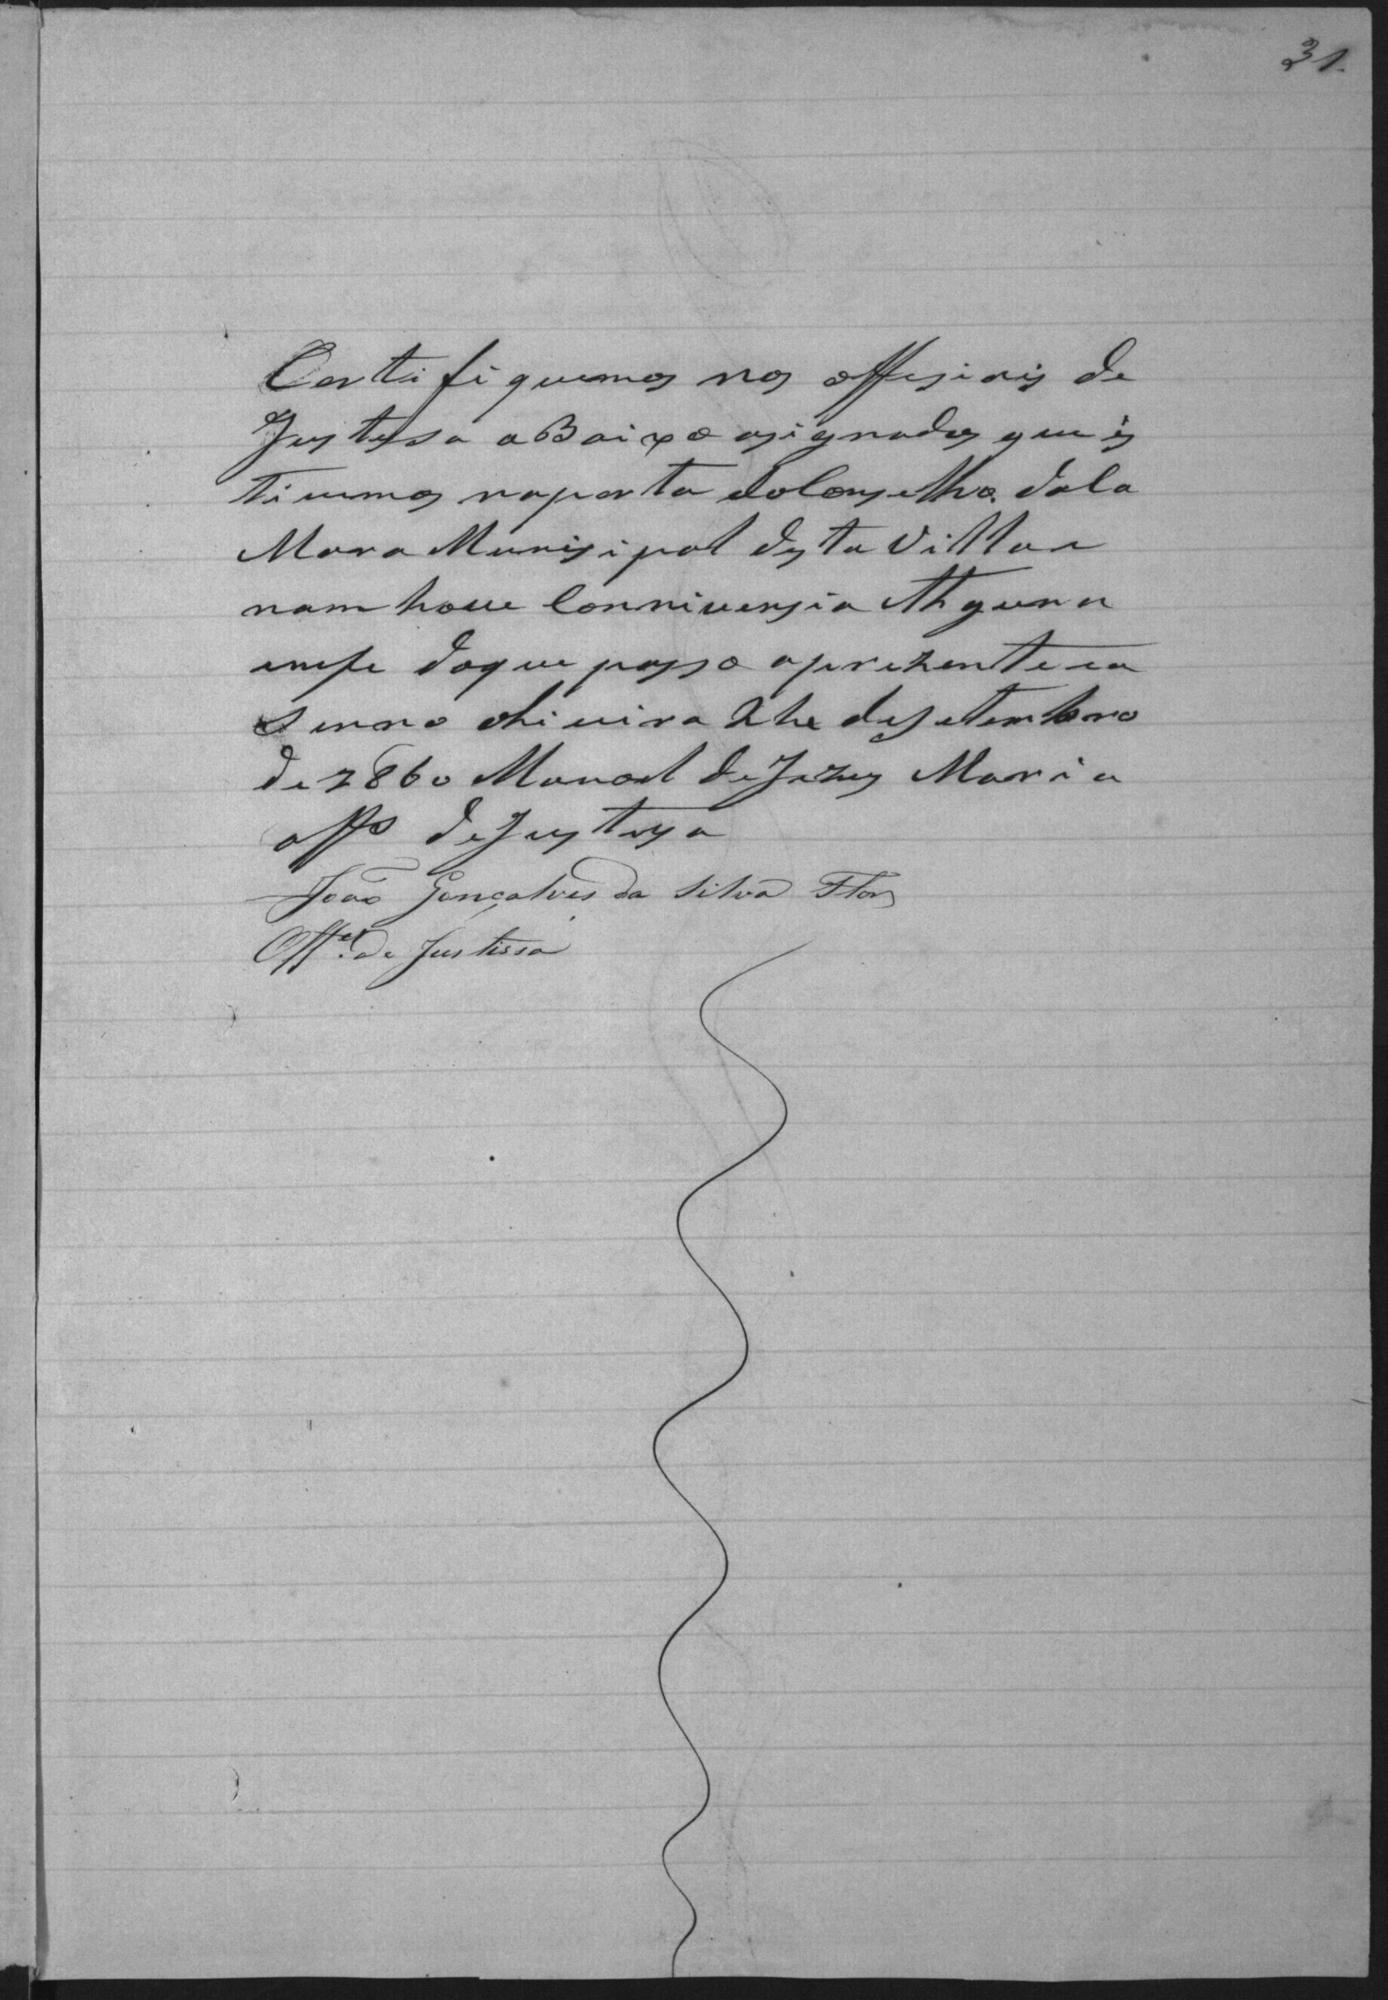 31.
Certifiquemos nos offesiais de
Justesa aBaixo asignados que is
tivemos naporta doConselho. daCa
Mara Munisipal desta Villa e
nam houve Conniversia Alguna
emfe doque passo aprezente ea
de setembro
de 1860 Manoel deJezus Maria
offo deJustesa
João Gonçalves da Silva Flor
Offel de Justissa